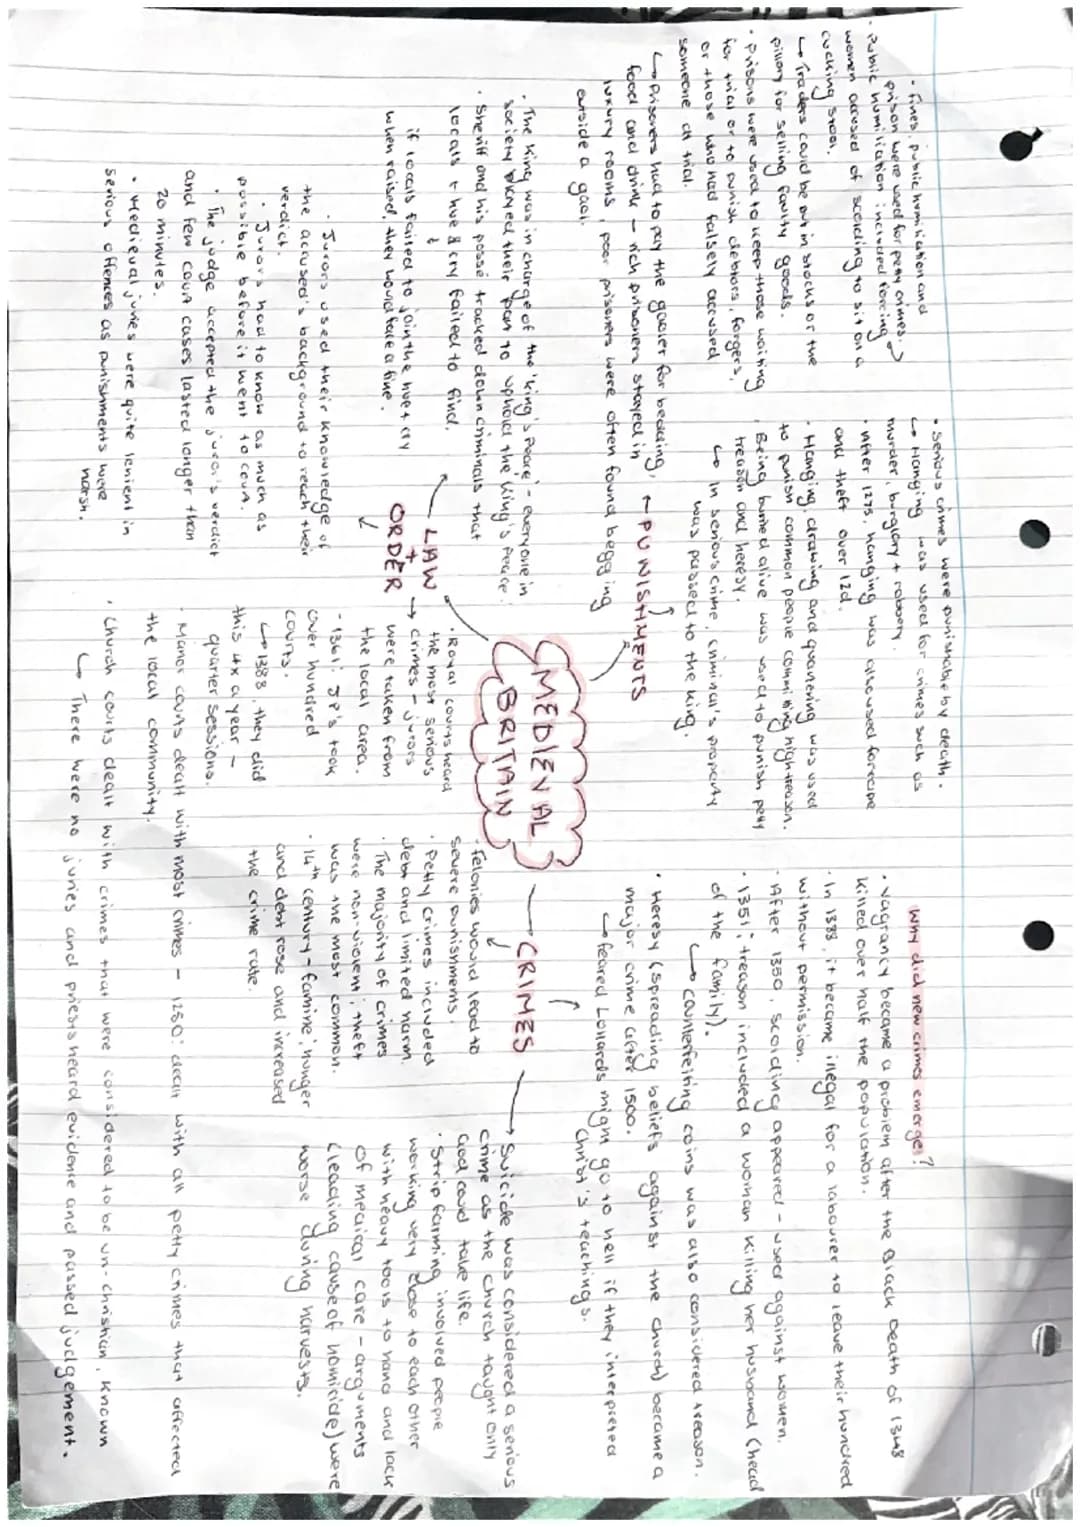 • Fines, public humiliation and
prison were used for petty crimes.
• Public humiliation included forcing
women accused of scolding to sit on a
cucking stool.
↳ Traders could be put in stocks or the
pillory for selling faulty goods.
• Prisons were used to keep those waiting
for trial or to punish debtors, forgers,
or those who had falsely accused
someone at trial.
↳ Prisoners had to pay the gaoler for bedding,
food and drink – rich prisoners stayed in
luxury rooms, poor prisoners were often found begging
outside a gaol.
• Serious crimes were punishable by death.
↳ Hanging was used for crimes such as
murder, burglary + robbery.
• After 1275, hanging was also used for rape
and theft over 12d.
• Hanging, drawing and quartering was used
to punish common people committing high treason.
• Being buried alive was used to punish petty
treason and heresy.
↳ In serious crime, criminal's property
was passed to the king.
← PUNISHMENTS
Why did new crimes emerge?
• Vagrancy became a problem after the Black Death of 1348
killed over half the population.
• In 1388, it became illegal for a labourer to leave their hundred
without permission.
• After 1350, scolding appeared – used against women.
• 1351: treason included a woman killing her husband (head
of the family).
↳ Counterfeiting coins was also considered treason.
• Heresy (spreading beliefs against the church) became a
major crime after 1500.
↳ feared Lollards might go to hell if they interpreted
Christ's teachings.
MEDIEVAL
BRITAIN
→ CRIMES
→ Suicide was considered a serious
crime as the church taught only
God could take life.
• Strip farming involved people
working very close to each other
with heavy tools to hand and lack
of medical care – arguments
(leading cause of homicide) were
worse during harvests.
• felonies would lead to
severe punishments.
• Petty crimes included
debt and limited harm.
• The majority of crimes
were non-violent; theft
was the most common.
• 14th century – famine; hunger
and debt rose and increased
the crime rate.
LAW
+
ORDER
• The king was in charge of the 'king's peace' – everyone in
society played their part to uphold the king's peace.
• Sheriff and his posse tracked down criminals that
locals + hue & cry failed to find.
if locals failed to join the hue + cry
when raised they would face a fine.
• Jurors used their knowledge of
the accused's background to reach their
verdict.
• Jurors had to know as much as
possible before it went to court.
• The judge accepted the juror's verdict
and few court cases lasted longer than
20 minutes.
• Medieval juries were quite lenient in
serious offences as punishments were
harsh.
• Royal courts heard
the most serious
→ crimes – jurors
were taken from
the local area.
• 1361: JP's took
over hundred
courts.
↳ 1388, they did
this 4x a year –
quarter sessions.
• Manor courts dealt with most crimes – 1250: dealt with all petty crimes that affected
the local community.
• Church courts dealt with crimes that were considered to be un-christian, known
↳ There were no juries and priests heard evidence and passed judgement.